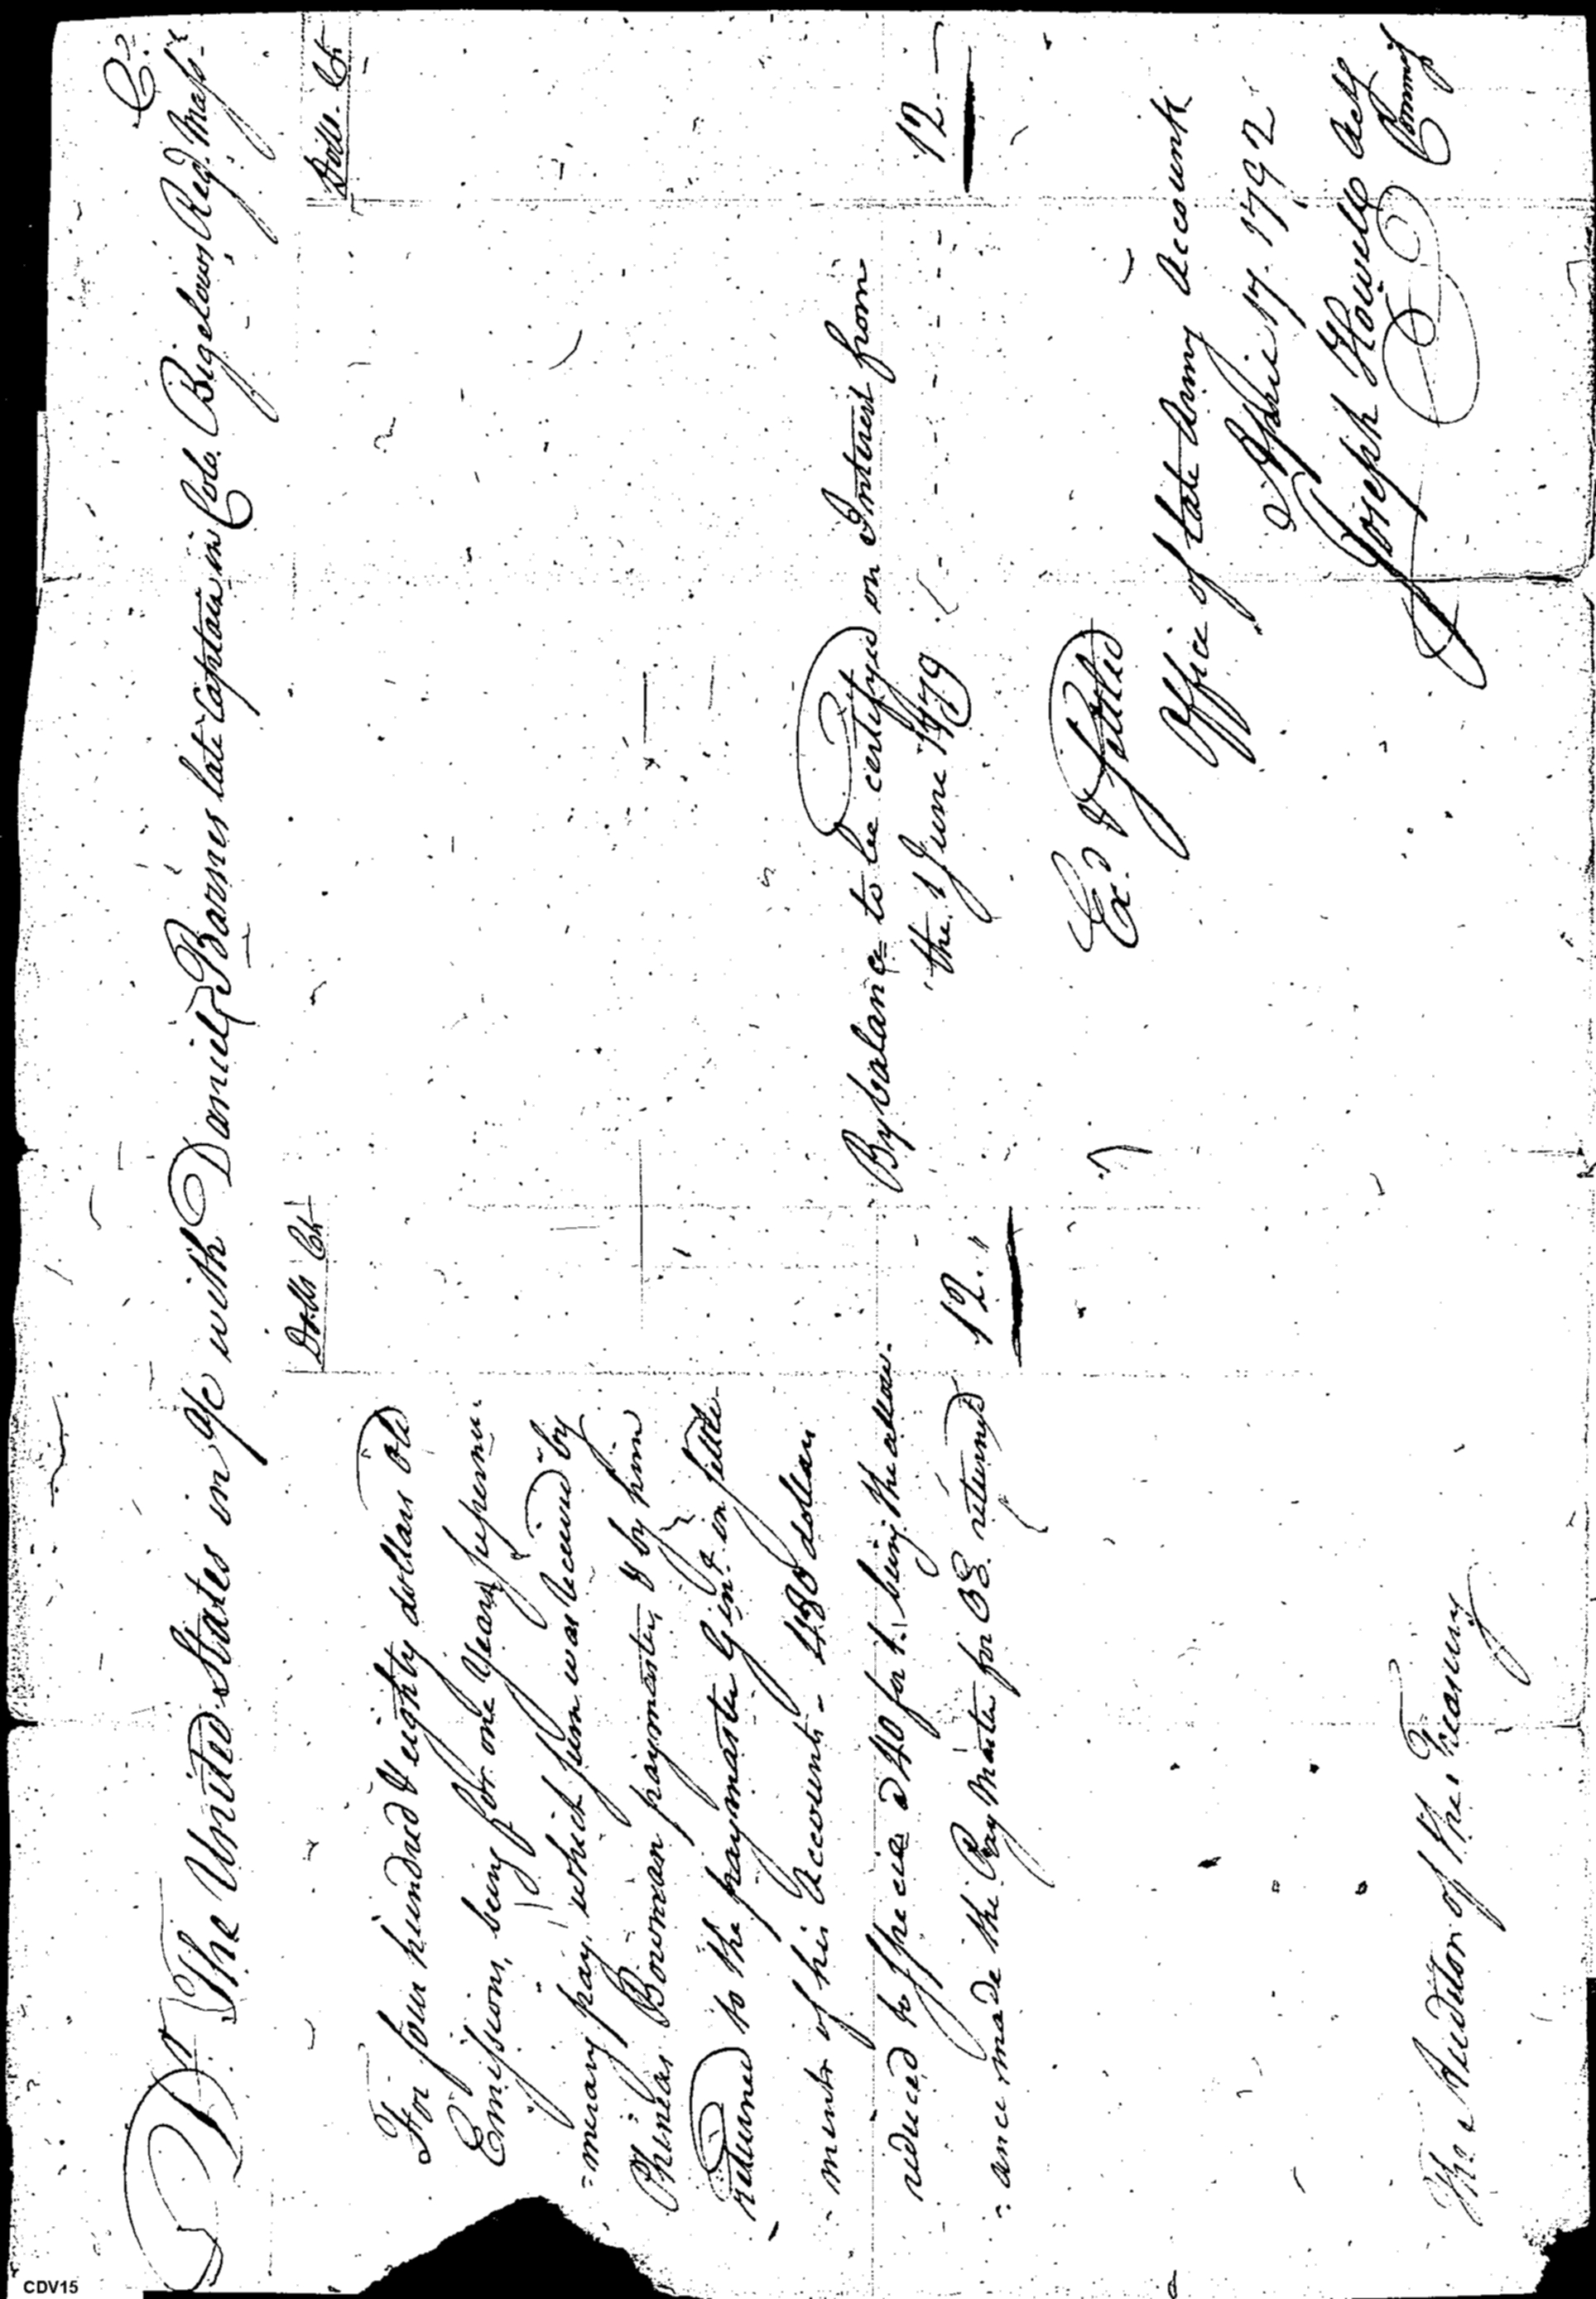 Dr. The United States in a/c with Daniel Barnes late Captain in Colo. Bigelows Regt. Masss. Cr.
Dolls Cts
For four hundred & eighty dollars old
Emissions, being for one Years supernu-
=merary pay, which sum was received by
Phineas Bowman paymaster, & by him
returned to the paymaster Genl. in settle
- ments of his Accounts - 480 dollars
reduced to Specie @ 40 for 1. being the allow-
= ance made the Pay Master for OE. returned 12."
Dolls. Cts
By balance to be certifyed on Interest from
the 1 June 1779 12.-
Exd. & settled
Office of late Army Accounts
April 17. 1792
Joseph Howell Actg
Commisr
The Auditor of the Treasury
CDV15